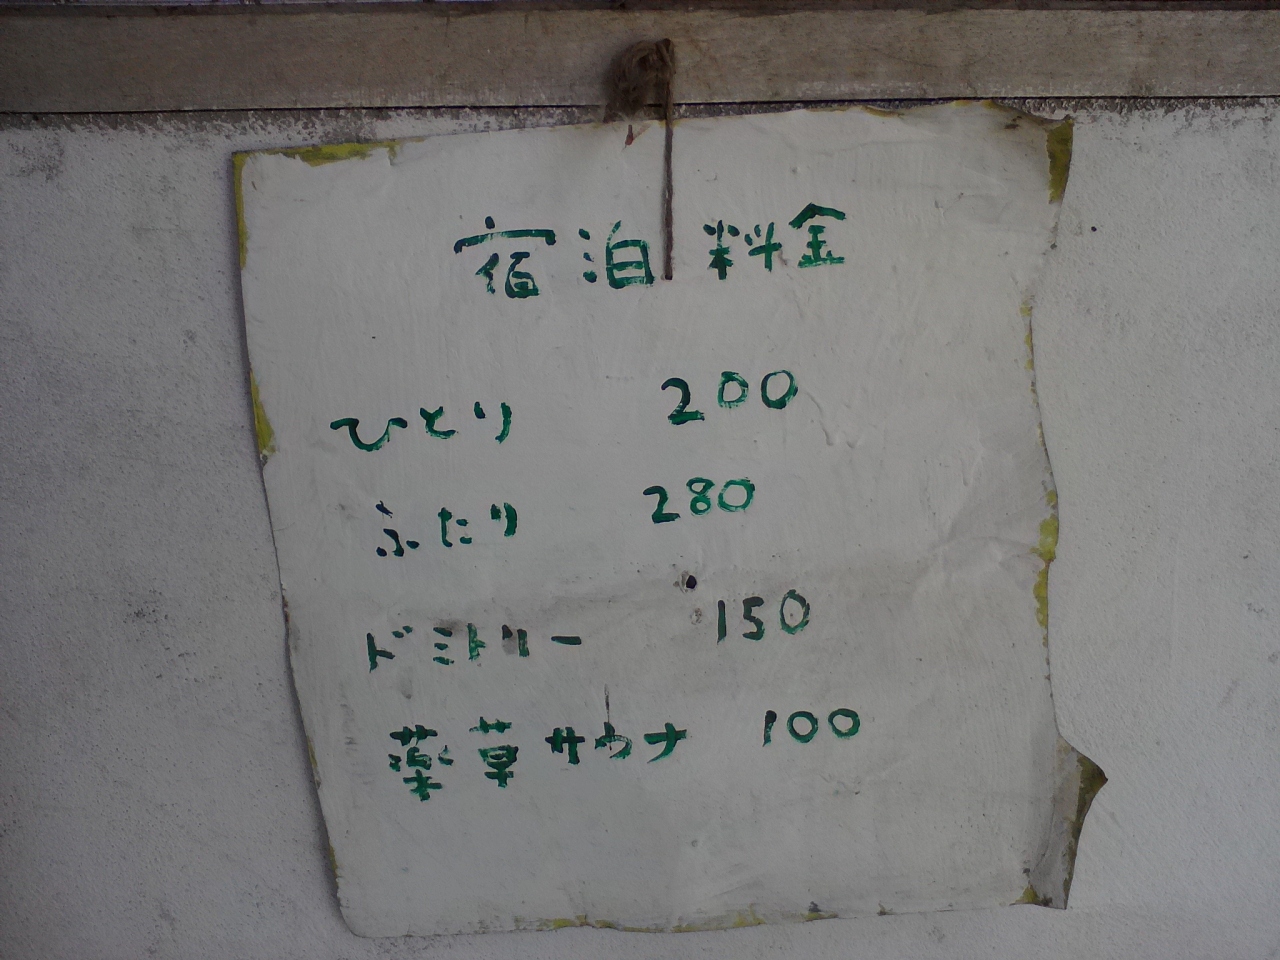 宿泊料金
ひとり 200
ふたり 280
ドミトリー 150
薬草サウナ 100